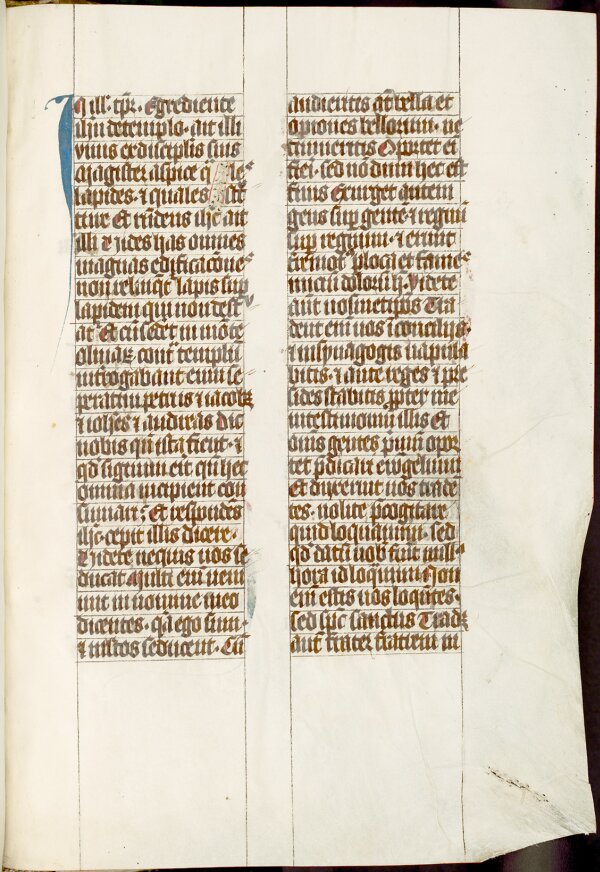 In ill' tp̄r. Egrediente
ihu de templo. ait illi
vnus ex discip̄lis suis
Magister aspice q̄les
lapides. ⁊ quales
ture Et rn̄dens ihc̄ ait
illi Vides has omnes
magnas edificacōnes
non relinq̄t̉ lapis sup̄
lapidem qui non dest̉
at̉ Et cū sed̄et in mōte
oliuaꝝ cont̉ templū
int̉rogabant eum se
peratim petrus ⁊ iacobꝰ
⁊ ioh̄es ⁊ andreas Dic
nobis qn̄ ista fient. ⁊
qd̄ signum erit qn̄ hec
omnia incipient con
sumari Et respondēs
ih̄c cepit illis dicere.
Videte nequis uos se
ducat Multi eni ueni
unt in nomine meo
dicentes. qa ego sum.
⁊ multos seducent. Cū
audieritis at̄ bella et
opiones bellorum. ne
timueritis Oportet ei
fiei. sed nōdum hec est
finis Exurget autem
gens sup̄ gentē. ⁊ regnū
sup̄ regnum. ⁊ erunt
t̉remot̉ p̄ loca et fames
inicia dolorū h̄. Videte
aut̄ uosmetip̄os Tra
dent eni uos i conciliis.
⁊ in synagogis uapula
bitis. ⁊ ante reges ⁊ pre
sides stabitis p̄pter me
in testimoniū illis Et
om̄s gentes p̄mū opor
tet p̄dicari ewāgeliuni
Et dux̄erint uos trade
tes. nolite p̄cogitare
quid loquamini. sed
qd̄ datū uob̄ fuit̉ in ill̉
hora id loq̄mini Non
eni estis uos loq̄ntes.
sed sp̄c sanctus Trad̉
aut̄ frater fratrem in